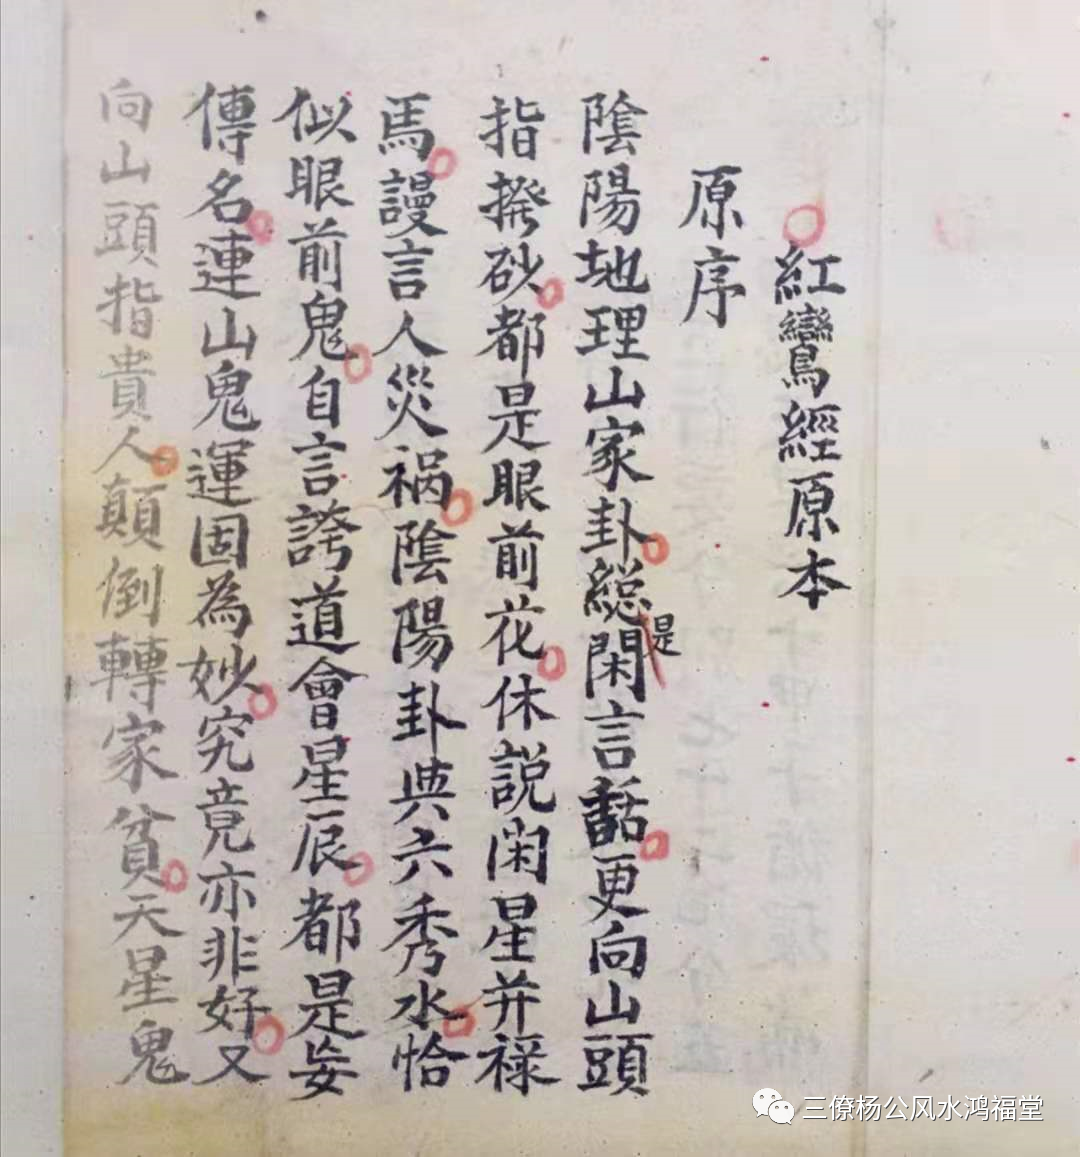 紅鸞經原本
原序
陰陽地理山家卦總是閑言話更向山頭
指撥砂都是眼前花休說閑星并祿
馬謾言人災禍陰陽卦與六秀水恰
似眼前鬼自言誇道會星辰都是妄
傳名連山鬼運固為妙究竟亦非好又
向山頭指貴人顛倒轉家貧天星鬼
三僚杨公风水鸿福堂